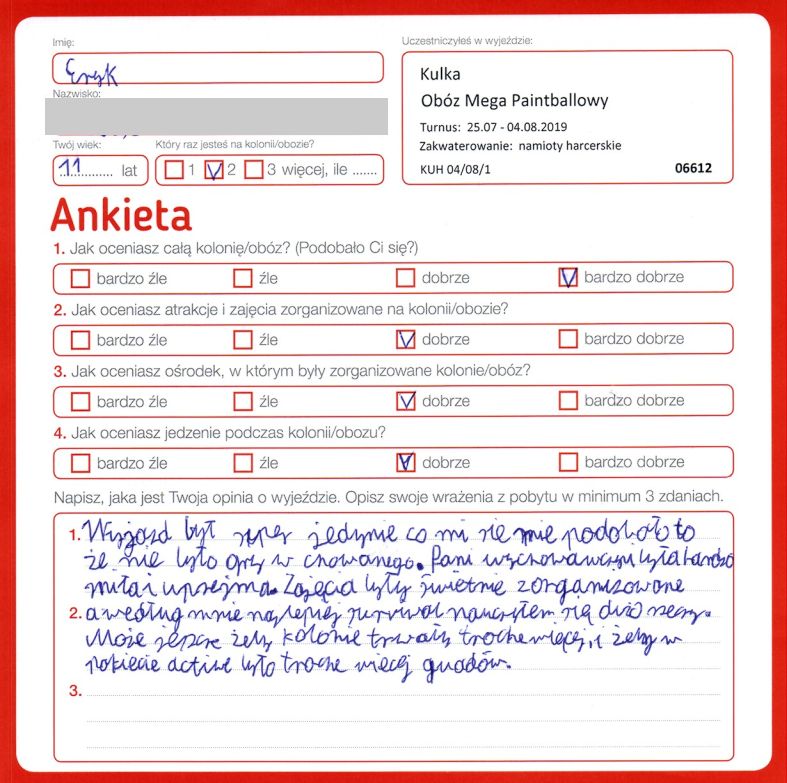 Imię:
Eryk
Nazwisko:
Twój wiek:
11 lat
Który raz jesteś na kolonii/obozie?
1 2 3 więcej, ile .......
Uczestniczyłeś w wyjeździe:
Kulka
Obóz Mega Paintballowy
Turnus: 25.07 - 04.08.2019
Zakwaterowanie: namioty harcerskie
KUH 04/08/1 06612
Ankieta
1. Jak oceniasz całą kolonię/obóz? (Podobało Ci się?)
bardzo źle źle dobrze bardzo dobrze
2. Jak oceniasz atrakcje i zajęcia zorganizowane na kolonii/obozie?
bardzo źle źle dobrze bardzo dobrze
3. Jak oceniasz ośrodek, w którym były zorganizowane kolonie/obóz?
bardzo źle źle dobrze bardzo dobrze
4. Jak oceniasz jedzenie podczas kolonii/obozu?
bardzo źle źle dobrze bardzo dobrze
Napisz, jaka jest Twoja opinia o wyjeździe. Opisz swoje wrażenia z pobytu w minimum 3 zdaniach.
1. Wyjazd był super jedynie co mi się nie podobało to
że nie było gry w chowanego. Pani wychowawczyni była bardzo
miła i uprzejma. Zajęcia były świetnie zorganizowane
2. a według mnie najlepiej survival nauczyłem się dużo rzeczy.
Może jeszcze żeby kolonie trwały troche więcej, i żeby w
pakiecie active było troche więcej quadów.
3.